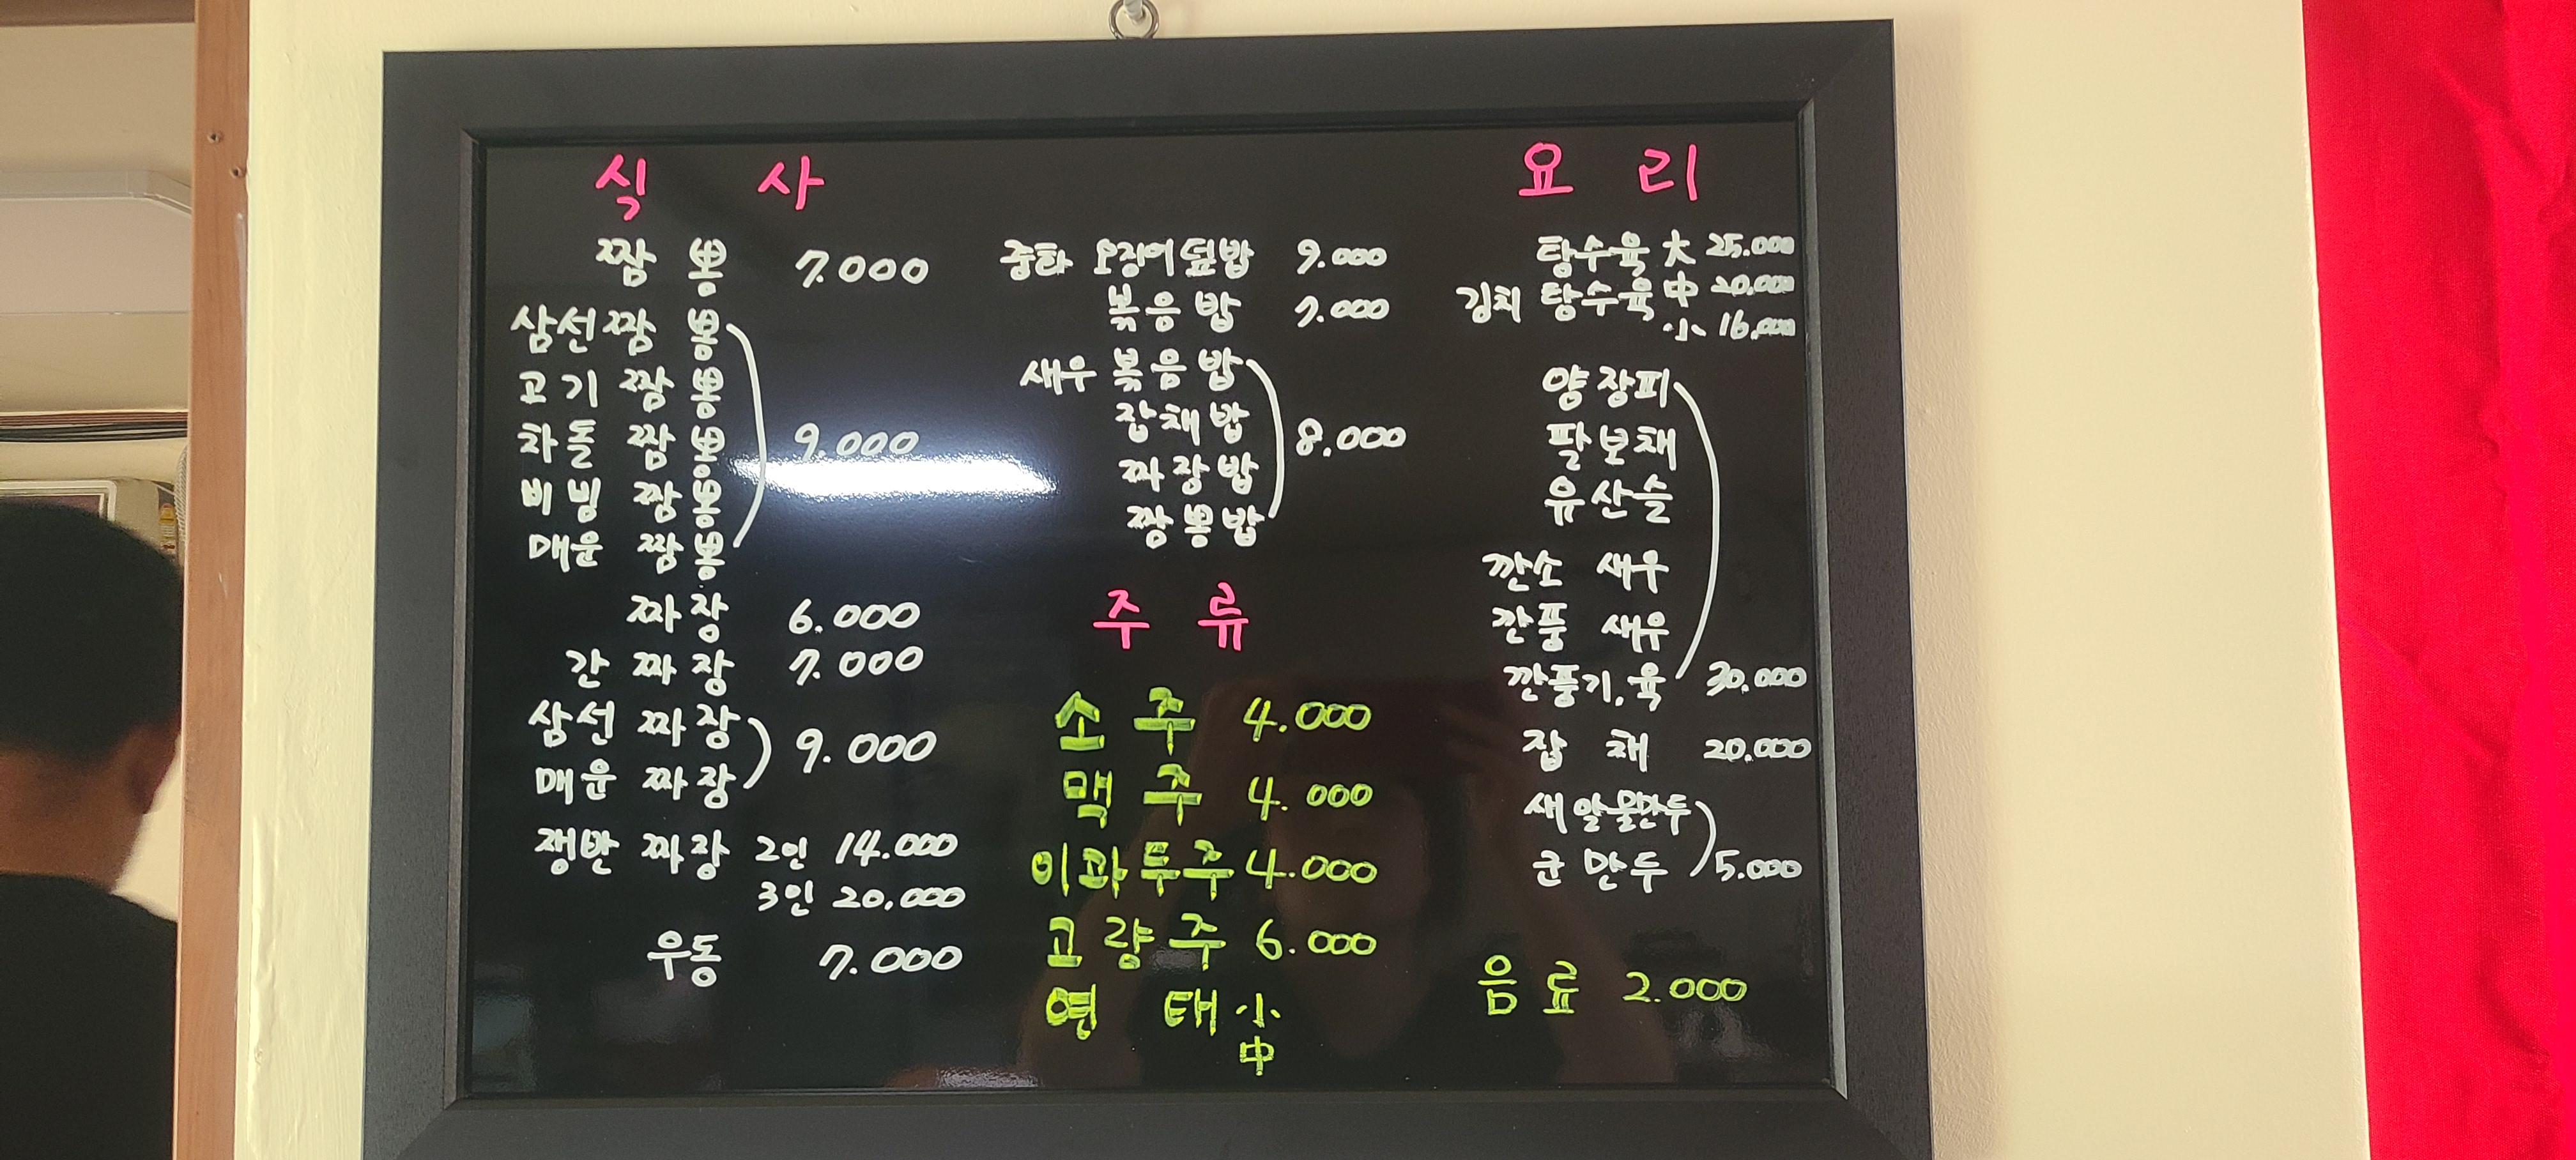 식 사
짬 뽕 7.000
삼선 짬 뽕
고기 짬 뽕
차돌 짬 뽕 9.000
비빔 짬 뽕
매운 짬 뽕
짜장 6.000
간 짜장 7.000
삼선 짜장
매운 짜장 9.000
쟁반 짜장 2인 14.000
3인 20.000
우동 7.000
중화 오징어 덮밥 9.000
볶음밥 7.000
새우 볶음밥
잡채밥
짜장밥 8.000
짬뽕밥
주 류
소 주 4.000
맥 주 4.000
이과두주 4.000
고량주 6.000
연 태 小
中
요 리
탕수육 大 25.000
김치 탕수육 中 20.000
小 16.000
양장피
팔보채
유산슬
깐소 새우
깐풍 새우
깐풍기.육 30.000
잡 채 20.000
새알물만두
군만두 5.000
음료 2.000